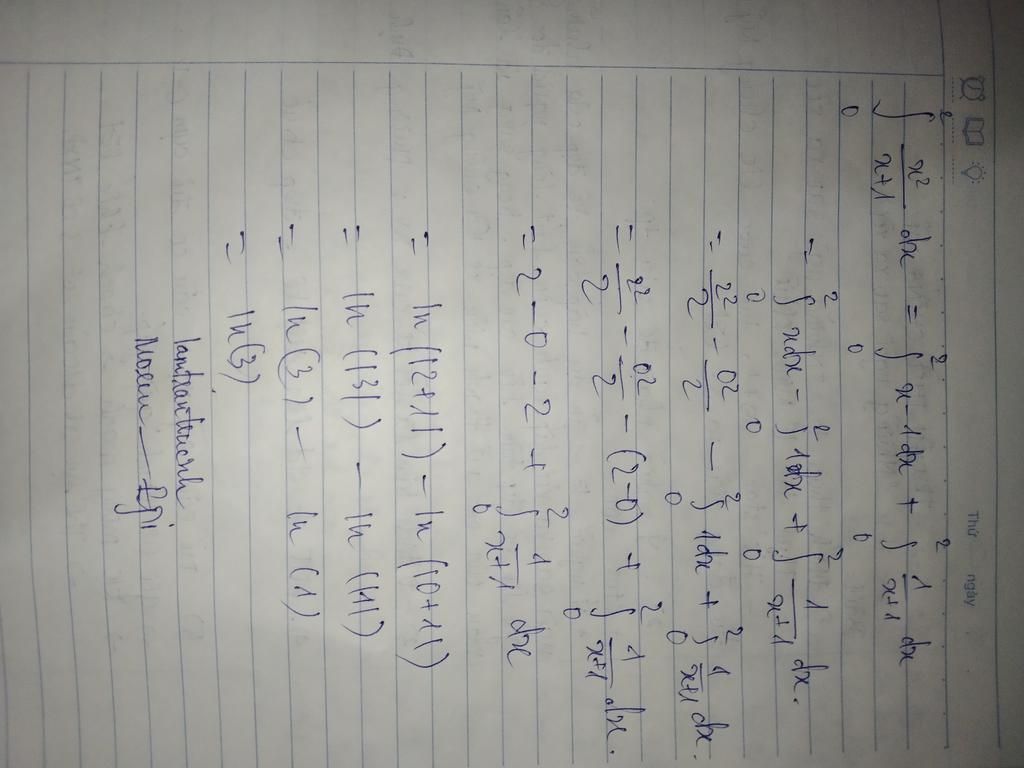 Thứ ngày
∫₀² x²/(x+1) dx = ∫₀² x-1dx + ∫₀² 1/(x+1) dx
= ∫₀² xdx - ∫₀² 1dx + ∫₀² 1/(x+1) dx.
= 2²/2 - 0²/2 - ∫₀² 1dx + ∫₀² 1/(x+1) dx.
= 2²/2 - 0²/2 - (2-0) + ∫₀² 1/(x+1) dx.
= 2 - 0 - 2 + ∫₀² 1/(x+1) dx
= ln(|2+1|) - ln(|0+1|)
= ln(|3|) - ln(|1|)
= ln(3) - ln(1).
= ln(3)